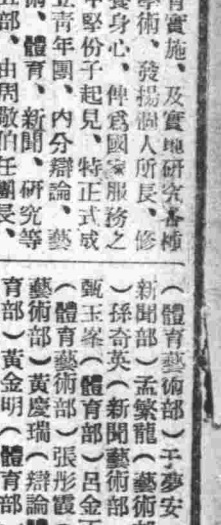 有實施、及實地研究各種
學術、發揚個人所長、修
養身心、俾爲國家服務之
中堅份子起見、特正式成
立青年團、内分辯論、藝
術、體育、新聞、研究等
五部、由周敬伯任團長、
（體育藝術部）于夢安
新聞部）孟繁龍（藝術
）孫奇英（新聞藝術部
甄玉峯（體育部）呂金
（體育藝術部）張彤霞
藝術部）黃慶瑞（辯論
育部）黃金明（體育部